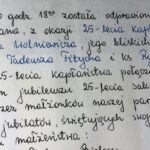 godz. 18⁰⁰ została odprawion
z okazji 25-lecia kap
Wolniewicza, jego bliskich
Tadeusza Fitycha i ks. Ry
25-lecia kapłaństwa połącz
jubileuszu 25-lecia sak
zez małżonków naszej par
jubilatów, świętujących swoj
małżeństwa.